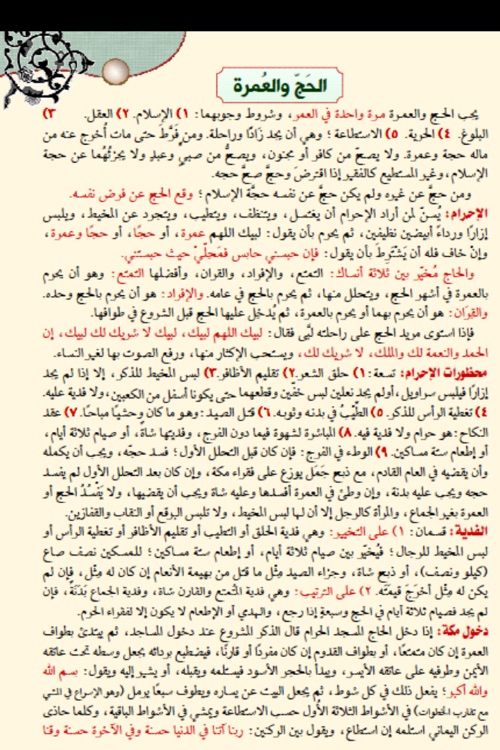 الحَجّ والعُمرة
يجب الحج والعمرة مرة واحدة في العمر، وشروط وجوبهما: ١) الإسلام. ٢) العقل. ٣)
البلوغ. ٤) الحرية. ٥) الاستطاعة؛ وهي أن يجد زادًا وراحلة. ومن فَرَّطَ حتى مات أُخرج عنه من
ماله حجة وعمرة. ولا يصحّ من كافر أو مجنون، ويصحُّ من صبيٍّ وعبدٍ ولا يجزئُهما عن حجة
الإسلام، وغير المستطيع كالفقير إذا اقترض وحجَّ صحَّ حجه.
ومن حجَّ عن غيره ولم يكن حجَّ عن نفسه حجَّة الإسلام؛ وقع الحج عن فرض نفسه.
الإحرام: يُسنّ لمن أراد الإحرام أن يغتسل، ويتنظف، ويتطيب، ويتجرد عن المخيط، ويلبس
إزارًا ورداءً أبيضين نظيفين، ثم يحرم بأن يقول: لبيك اللهم عمرة، أو حجًا، أو حجًا وعمرة،
وإن خاف فله أن يَشْتَرِطَ بأن يقول: فإن حبسني حابس فمَحِلّي حيث حبستني.
والحاج مُخيّر بين ثلاثة أنساك: التمتع، والإفراد، والقران، وأفضلها التمتع: وهو أن يحرم
بالعمرة في أشهر الحج، ويتحلل منها، ثم يحرم بالحج في عامه. والإفراد: هو أن يحرم بالحج وحده.
والقِرَان: هو أن يحرم بهما أو يحرم بالعمرة، ثم يُدخل عليها الحج قبل الشروع في طوافها.
فإذا استوى مريد الحج على راحلته لبَّى فقال: لبيك اللهم لبيك، لبيك لا شريك لك لبيك، إن
الحمد والنعمة لك والملك، لا شريك لك، ويستحب الإكثار منها، ورفع الصوت بها لغير النساء.
محظورات الإحرام: تسعة: ١) حلق الشعر. ٢) تقليم الأظافر. ٣) لبس المخيط للذكر، إلا إذا لم يجد
إزارًا فيلبس سراويل، أو لم يجد نعلين لبس خفّين وقطعهما حتى يكونا أسفل من الكعبين، ولا فدية عليه.
٤) تغطية الرأس للذكر. ٥) الطِّيْبُ في بدنه وثوبه. ٦) قتل الصيد: وهو ما كان وحشيًا مباحًا. ٧) عقد
النكاح: هو حرام ولا فدية فيه. ٨) المباشرة لشهوة فيما دون الفرج، وفديتها شاة، أو صيام ثلاثة أيام،
أو إطعام ستة مساكين. ٩) الوطء في الفرج: فإن كان قبل التحلل الأول؛ فسد حجّه، ويجب أن يكمله
وأن يقضيه في العام القادم، مع ذبح جَمَل يوزع على فقراء مكة، وإن كان بعد التحلل الأول لم يفسد
حجه ويجب عليه بدنة، وإن وطئ في العمرة أفسدها وعليه شاة ويجب أن يقضيها، ولا يَفْسُدُ الحج أو
العمرة بغير الجماع، والمرأة كالرجل إلا أن لها لبس المخيط، ولا تلبس البرقع أو النقاب والقفازين.
الفدية: قسمان: ١) على التخيير: وهي فدية الحلق أو التطيب أو تقليم الأظافر أو تغطية الرأس أو
لبس المخيط للرجال؛ فيُخيّر بين صيام ثلاثة أيام، أو إطعام ستة مساكين؛ للمسكين نصف صاع
(كيلو ونصف)، أو ذبح شاة، وجزاء الصيد مِثْل ما قتل من بهيمة الأنعام إن كان له مِثْل، فإن لم
يكن له مِثْل أخرَجَ قيمتَه. ٢) على الترتيب: وهي فدية المُتمتع والقارن شاة، وفدية الجماع بَدَنَةٌ، فإن
لم يجد فصيام ثلاثة أيام في الحج وسبعة إذا رجع، والهدي أو الإطعام لا يكون إلا لفقراء الحرم.
دخول مكة: إذا دخل الحاج المسجد الحرام قال الذكر المشروع عند دخول المساجد، ثم يبتدئ بطواف
العمرة إن كان متمتعًا، أو بطواف القدوم إن كان مفردًا أو قارنًا، فيضطبع بردائه بجعل وسطه تحت عاتقه
الأيمن وطرفيه على عاتقه الأيسر، ويبدأ بالحجر الأسود فيستلمه ويقبله، أو يشير إليه ويقول: بسم الله
والله أكبر؛ يفعل ذلك في كل شوط، ثم يجعل البيت عن يساره ويطوف سبعًا يرمل (وهو الإسراع في المشي
مع تقارب الخطوات) في الأشواط الثلاثة الأُول حسب الاستطاعة ويمشي في الأشواط الباقية، وكلما حاذى
الركن اليماني استلمه إن استطاع، ويقول بين الركنين: ربنا آتنا في الدنيا حسنة وفي الآخرة حسنة وقنا